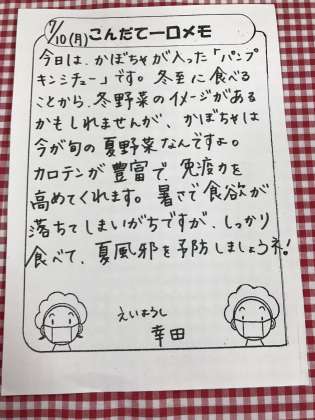 7/10(月) こんだて一口メモ
今日は、かぼちゃが入った「パンプ
キンシチュー」です。冬至に食べる
ことから、冬野菜のイメージがある
かもしれませんが、かぼちゃは
今が旬の夏野菜なんですよ。
カロテンが豊富で、免疫力を
高めてくれます。暑さで食欲が
落ちてしまいがちですが、しっかり
食べて、夏風邪を予防しましょうネ!
えいようし
幸田